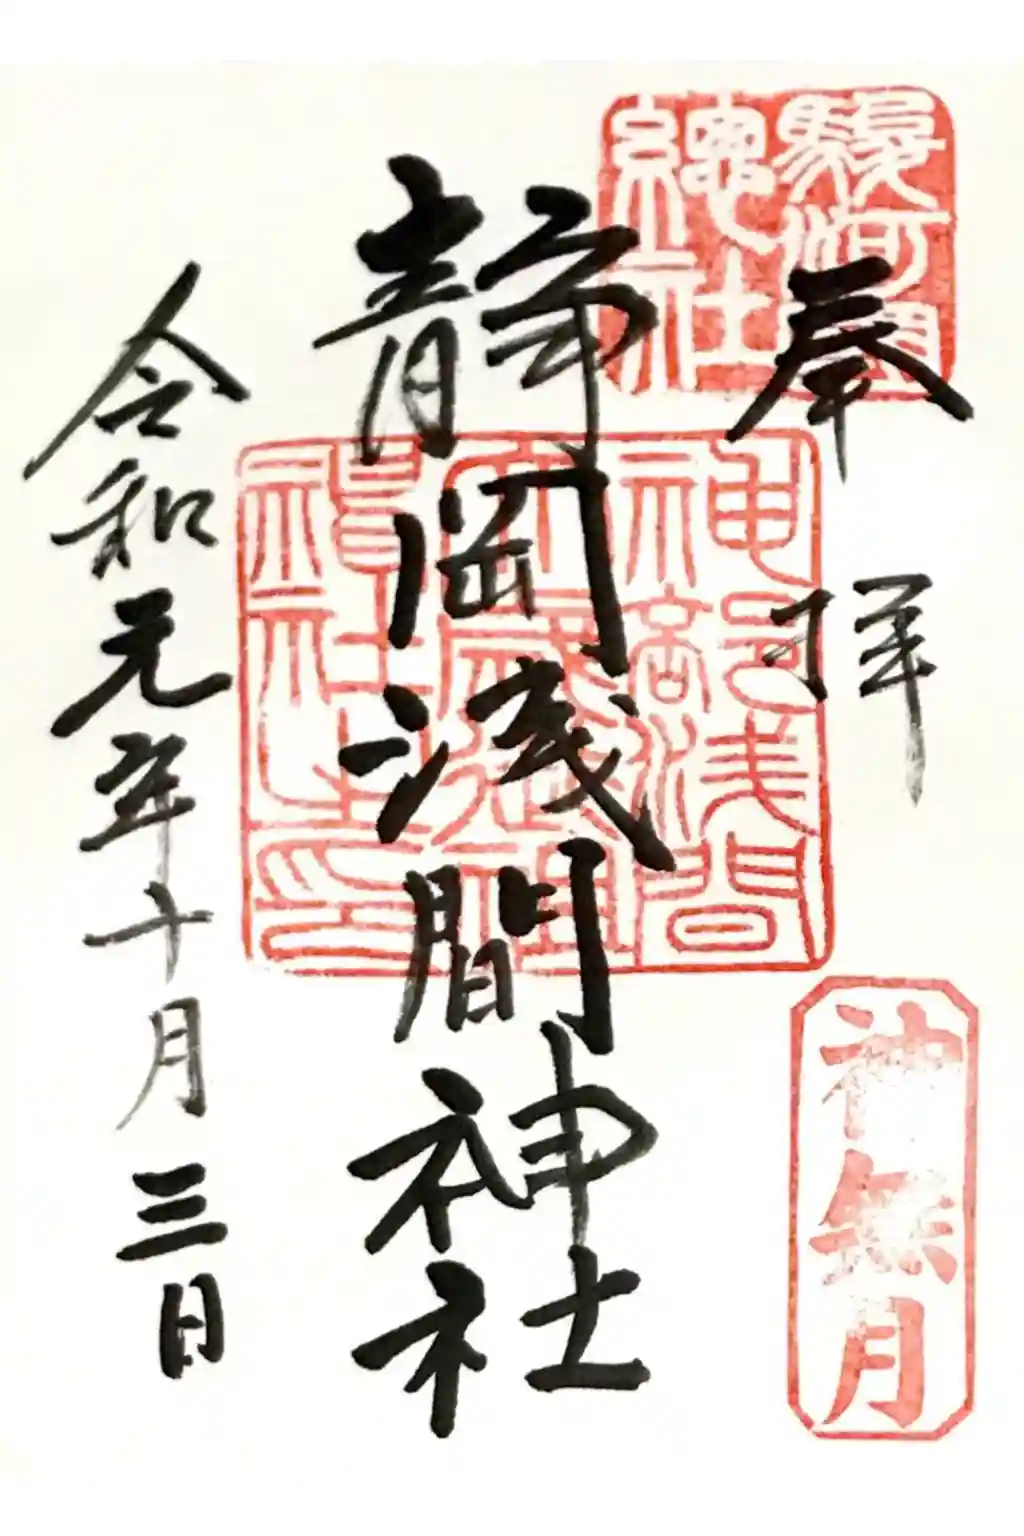 奉拝
駿河國
總社
静岡浅間神社
神部浅間
神社之印
令和元年十月三日
神無月